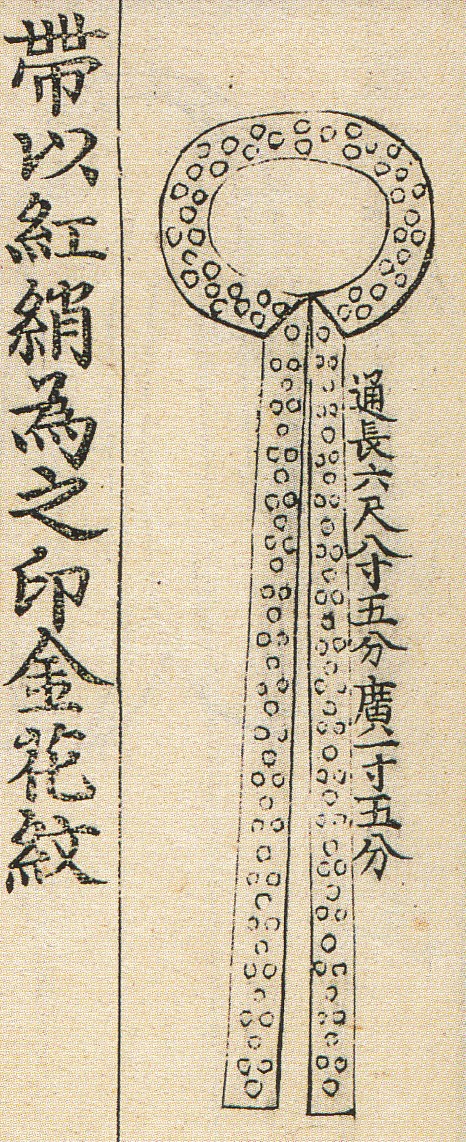 通長六尺八寸五分廣一寸五分
帶以紅綃為之印金花紋